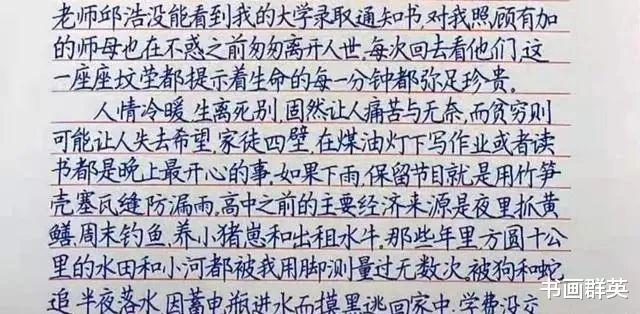 老师邱浩没能看到我的大学录取通知书,对我照顾有加
的师母也在不惑之前匆匆离开人世,每次回去看他们,这
一座座坟茔都提示着生命的每一分钟都弥足珍贵。
人情冷暖,生离死别,固然让人痛苦与无奈,而贫穷则
可能让人失去希望,家徒四壁,在煤油灯下写作业或者读
书都是晚上最开心的事,如果下雨,保留节目就是用竹笋
壳塞瓦缝防漏雨,高中之前的主要经济来源是夜里抓黄
鳝,周末钓鱼,养小猪崽和出租水牛。那些年里方圆十公
里的水田和小河都被我用脚测量过无数次。被狗和蛇
追,半夜落水,因蓄电瓶进水而摸黑逃回家中,学费没交
书画群英